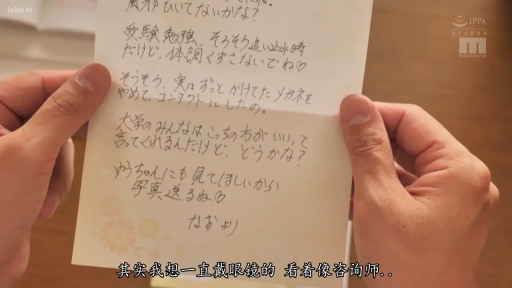 Jable.tv
風邪ひいてないかな?
受験勉強、そろそろ追い込み時
だけど、体調くずさないでね♡
そうそう、実はずっとかけてたメガネを
やめて、コンタクトにしたの。
大学のみんなはこっちの方がいいって
言ってくれるんだけど、どうかな?
ゆうちゃんにも見てほしいから
写真送るね♡
なおより
IPPA
m
其实我想一直戴眼镜的 看着像咨询师..